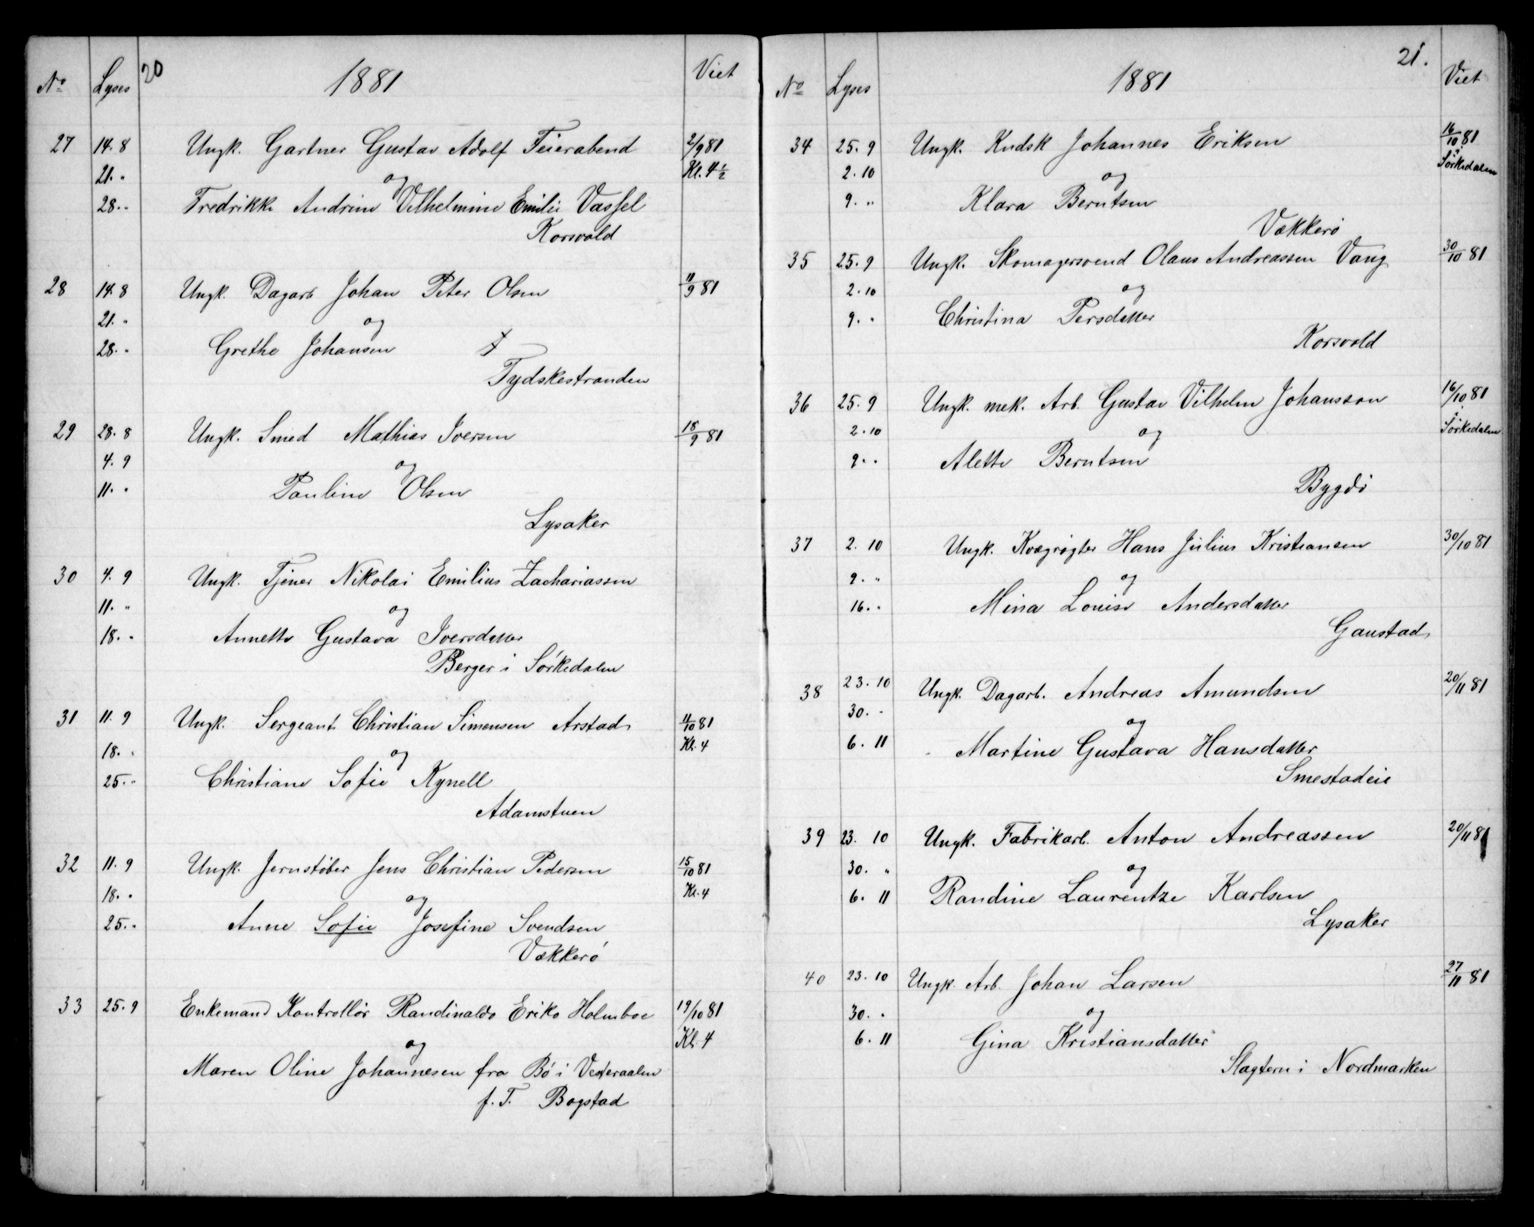 20
1881
No Lyses Viet
27 14. 8 Ungk. Gartner Gustav Adolf Feierabend 2/9 81
21. " og Kl. 4 1/2
28. " Fredrikke Andrine Vilhelmine Emilie Vassel
Korsvold
28 14. 8 Ungk. Dagarb Johan Peter Olsen 11/9 81
21. " og
28. " Grethe Johansen
Tydskestranden
29 28. 8 Ungk. Smed Mathias Iversen 18/9 81
4. 9 og
11. " Pauline Olsen
Lysaker
30 4. 9 Ungk. Tjener Nikolai Emilius Zachariassen
11. " og
18. " Annette Gustava Iversdatter
Berger i Sørkedalen
31 11. 9 Ungk. Sergeant Christian Simensen Arstad 11/10 81
18. " og Kl. 4
25. " Christiane Sofie Kynell
Adamstuen
32 11. 9 Ungk. Jernstøber Jens Christian Pedersen 15/10 81
18. " og Kl. 4
25. " Anne Sofie Josefine Svendsen
Vækkerø
33 25. 9 Enkemand Kontrollør Randinaldo Eriko Holmboe 19/10 81
og Kl. 4
Maren Oline Johannesen fra Bø i Vesteraalen
f. T. Bogstad
21.
1881
No Lyses Viet
34 25. 9 Ungk. Kudsk Johannes Eriksen 16/10 81
2. 10 og i Sørkedalen
9. " Klara Berntsen
Vækkerø
35 25. 9 Ungk. Skomagersvend Olaus Andreassen Vang 30/10 81
2. 10 og
9. " Christina Persdatter
Korsvold
36 25. 9 Ungk. mek. Arb. Gustav Vilhelm Johansson 16/10 81
2. 10 og i Sørkedalen
9. " Alette Berntsen
Bygdø
37 2. 10 Ungk. Kvægrøgter Hans Julius Kristiansen 30/10 81
9. " og
16. " Mina Louise Andersdatter
Gaustad
38 23. 10 Ungk. Dagarb. Andreas Amundsen 20/11 81
30. " og
6. 11 Martine Gustava Hansdatter
Smestadeie
39 23. 10 Ungk. Fabrikarb. Anton Andreassen 20/11 81
30. " og
6. 11 Randine Laurentze Karlsen
Lysaker
40 23. 10 Ungk. Arb. Johan Larsen 27/11 81
30. " og
6. 11 Gina Kristiansdatter
Slagtern i Nordmarken